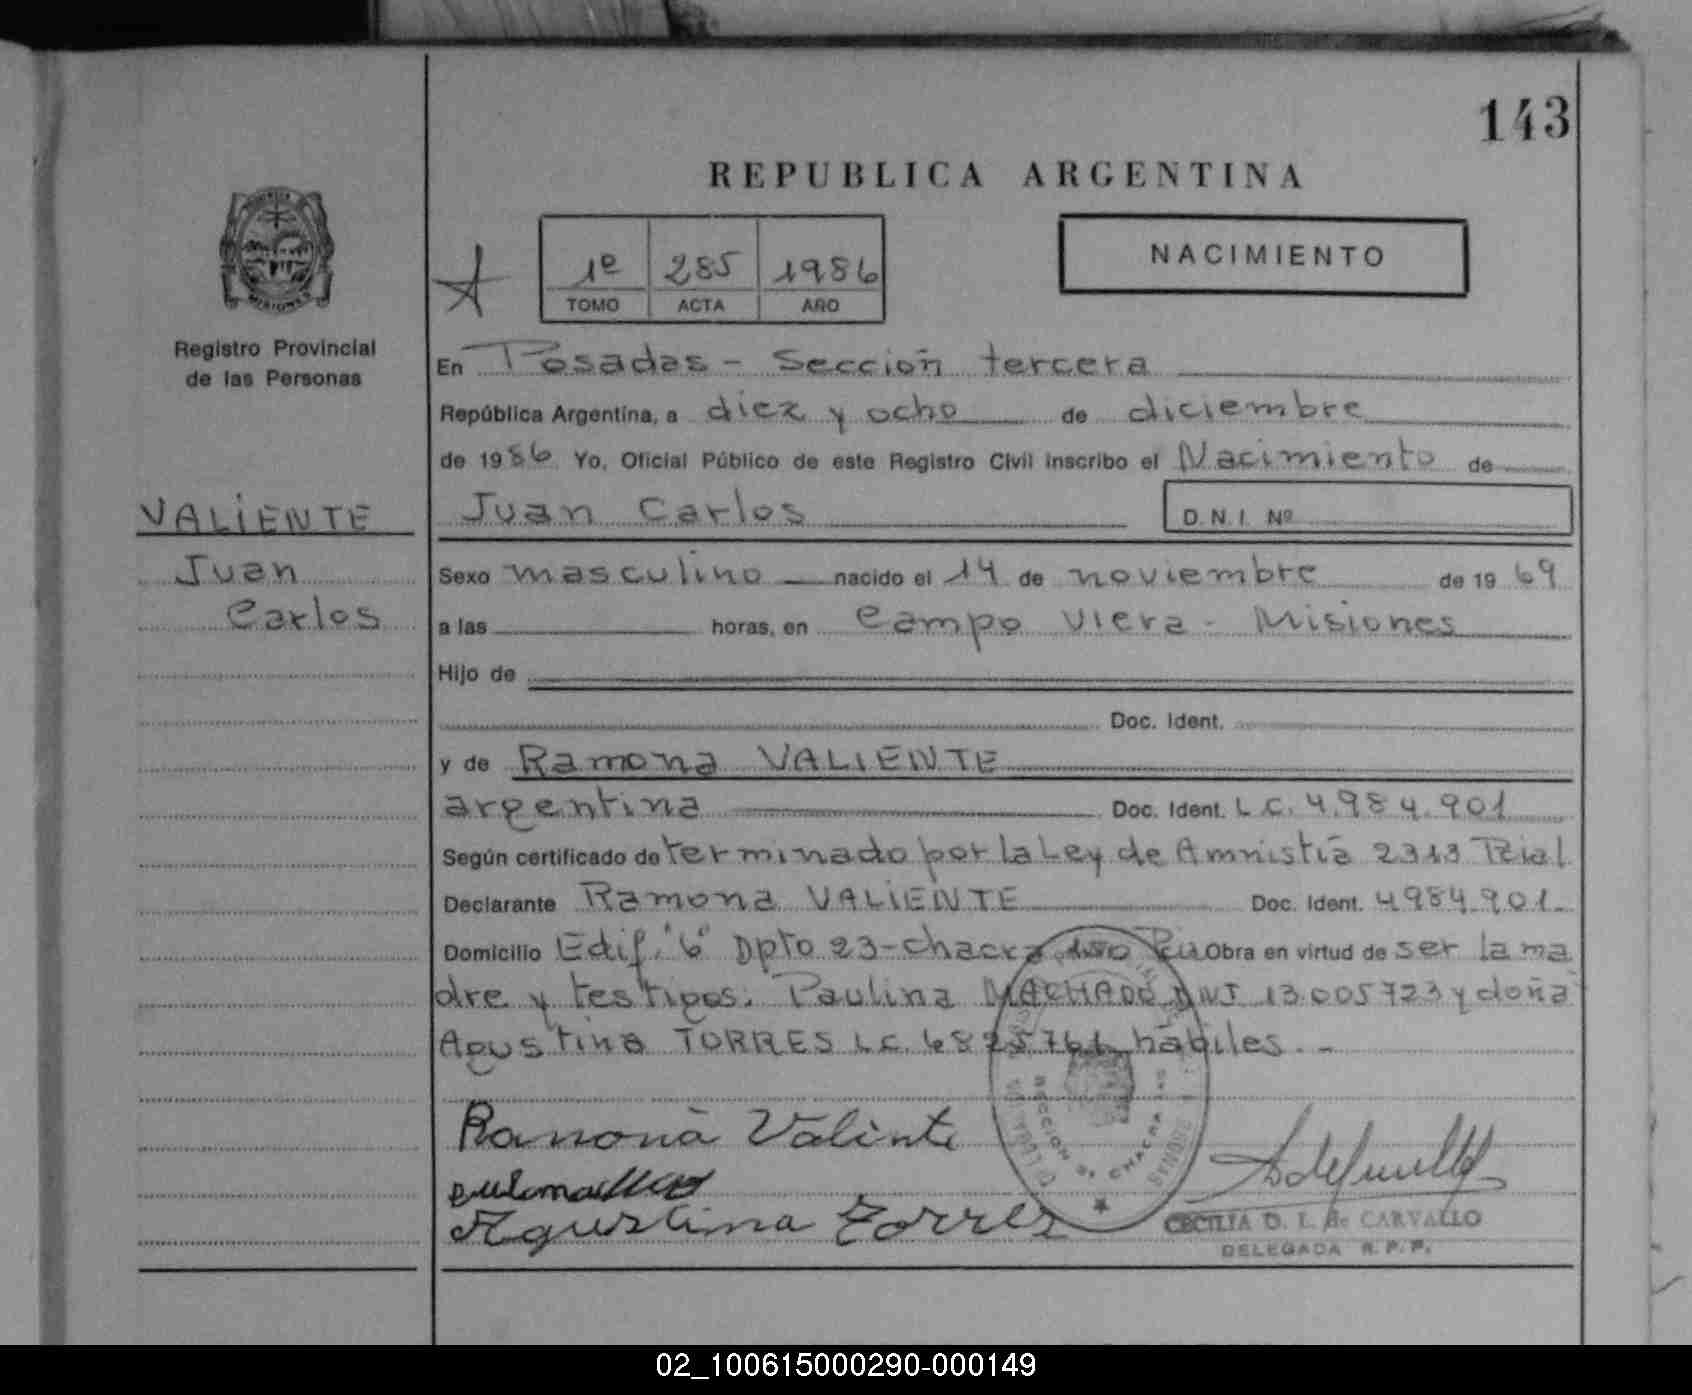 143
REPUBLICA ARGENTINA
1º 285 1986
TOMO ACTA AÑO
NACIMIENTO
MISIONES
Registro Provincial
de las Personas
En Posadas - Sección tercera
República Argentina, a diez y ocho de diciembre
de 1986 Yo, Oficial Público de este Registro Civil inscribo el Nacimiento de
VALIENTE
Juan Carlos
D.N.I. Nº
Juan
Carlos
Sexo masculino nacido el 14 de noviembre de 1969
a las horas, en Campo Viera - Misiones
Hijo de
Doc. Ident.
y de Ramona VALIENTE
argentina Doc. Ident. L.C. 4.984.901
Según certificado de terminado por la Ley de Amnistía 2313 Pcial
Declarante Ramona VALIENTE Doc. Ident. 4984.901.
Domicilio Edif. "6" Dpto 23 - chacra Obra en virtud de ser la ma
dre y testigos: Paulina MACHADO DNI 13.005723 y doña
Agustina TORRES L.C. hábiles. -
Ramona Valinte
Agustina Torres
SECCION 3ª CHACRA
CECILIA D. L. de CARVALLO
DELEGADA R. P. P.
02_100615000290-000149